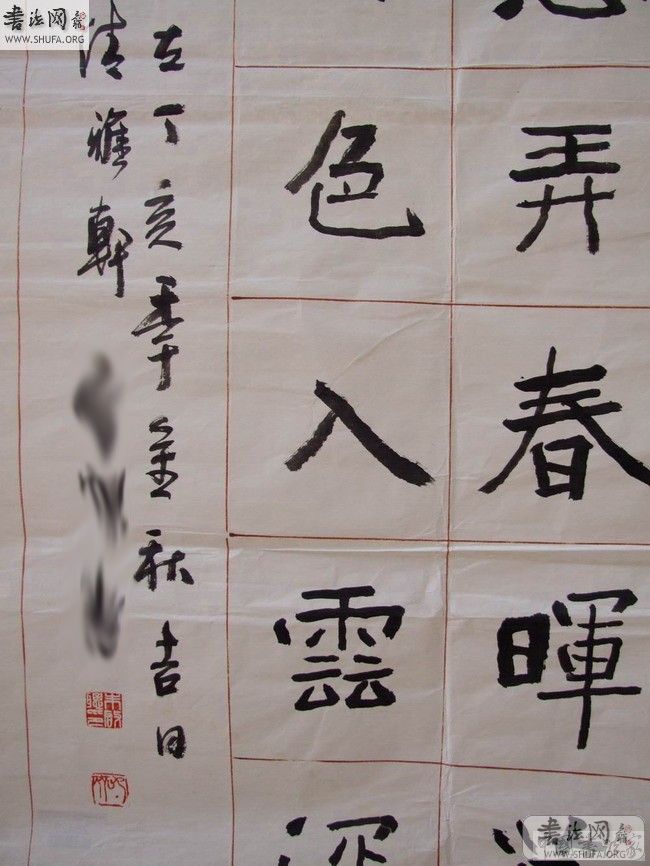 书法网
WWW.SHUFA.ORG
弄春暉
色入雲深
在丁亥年金秋吉日
清雅軒
书法网
WWW.SHUFA.ORG